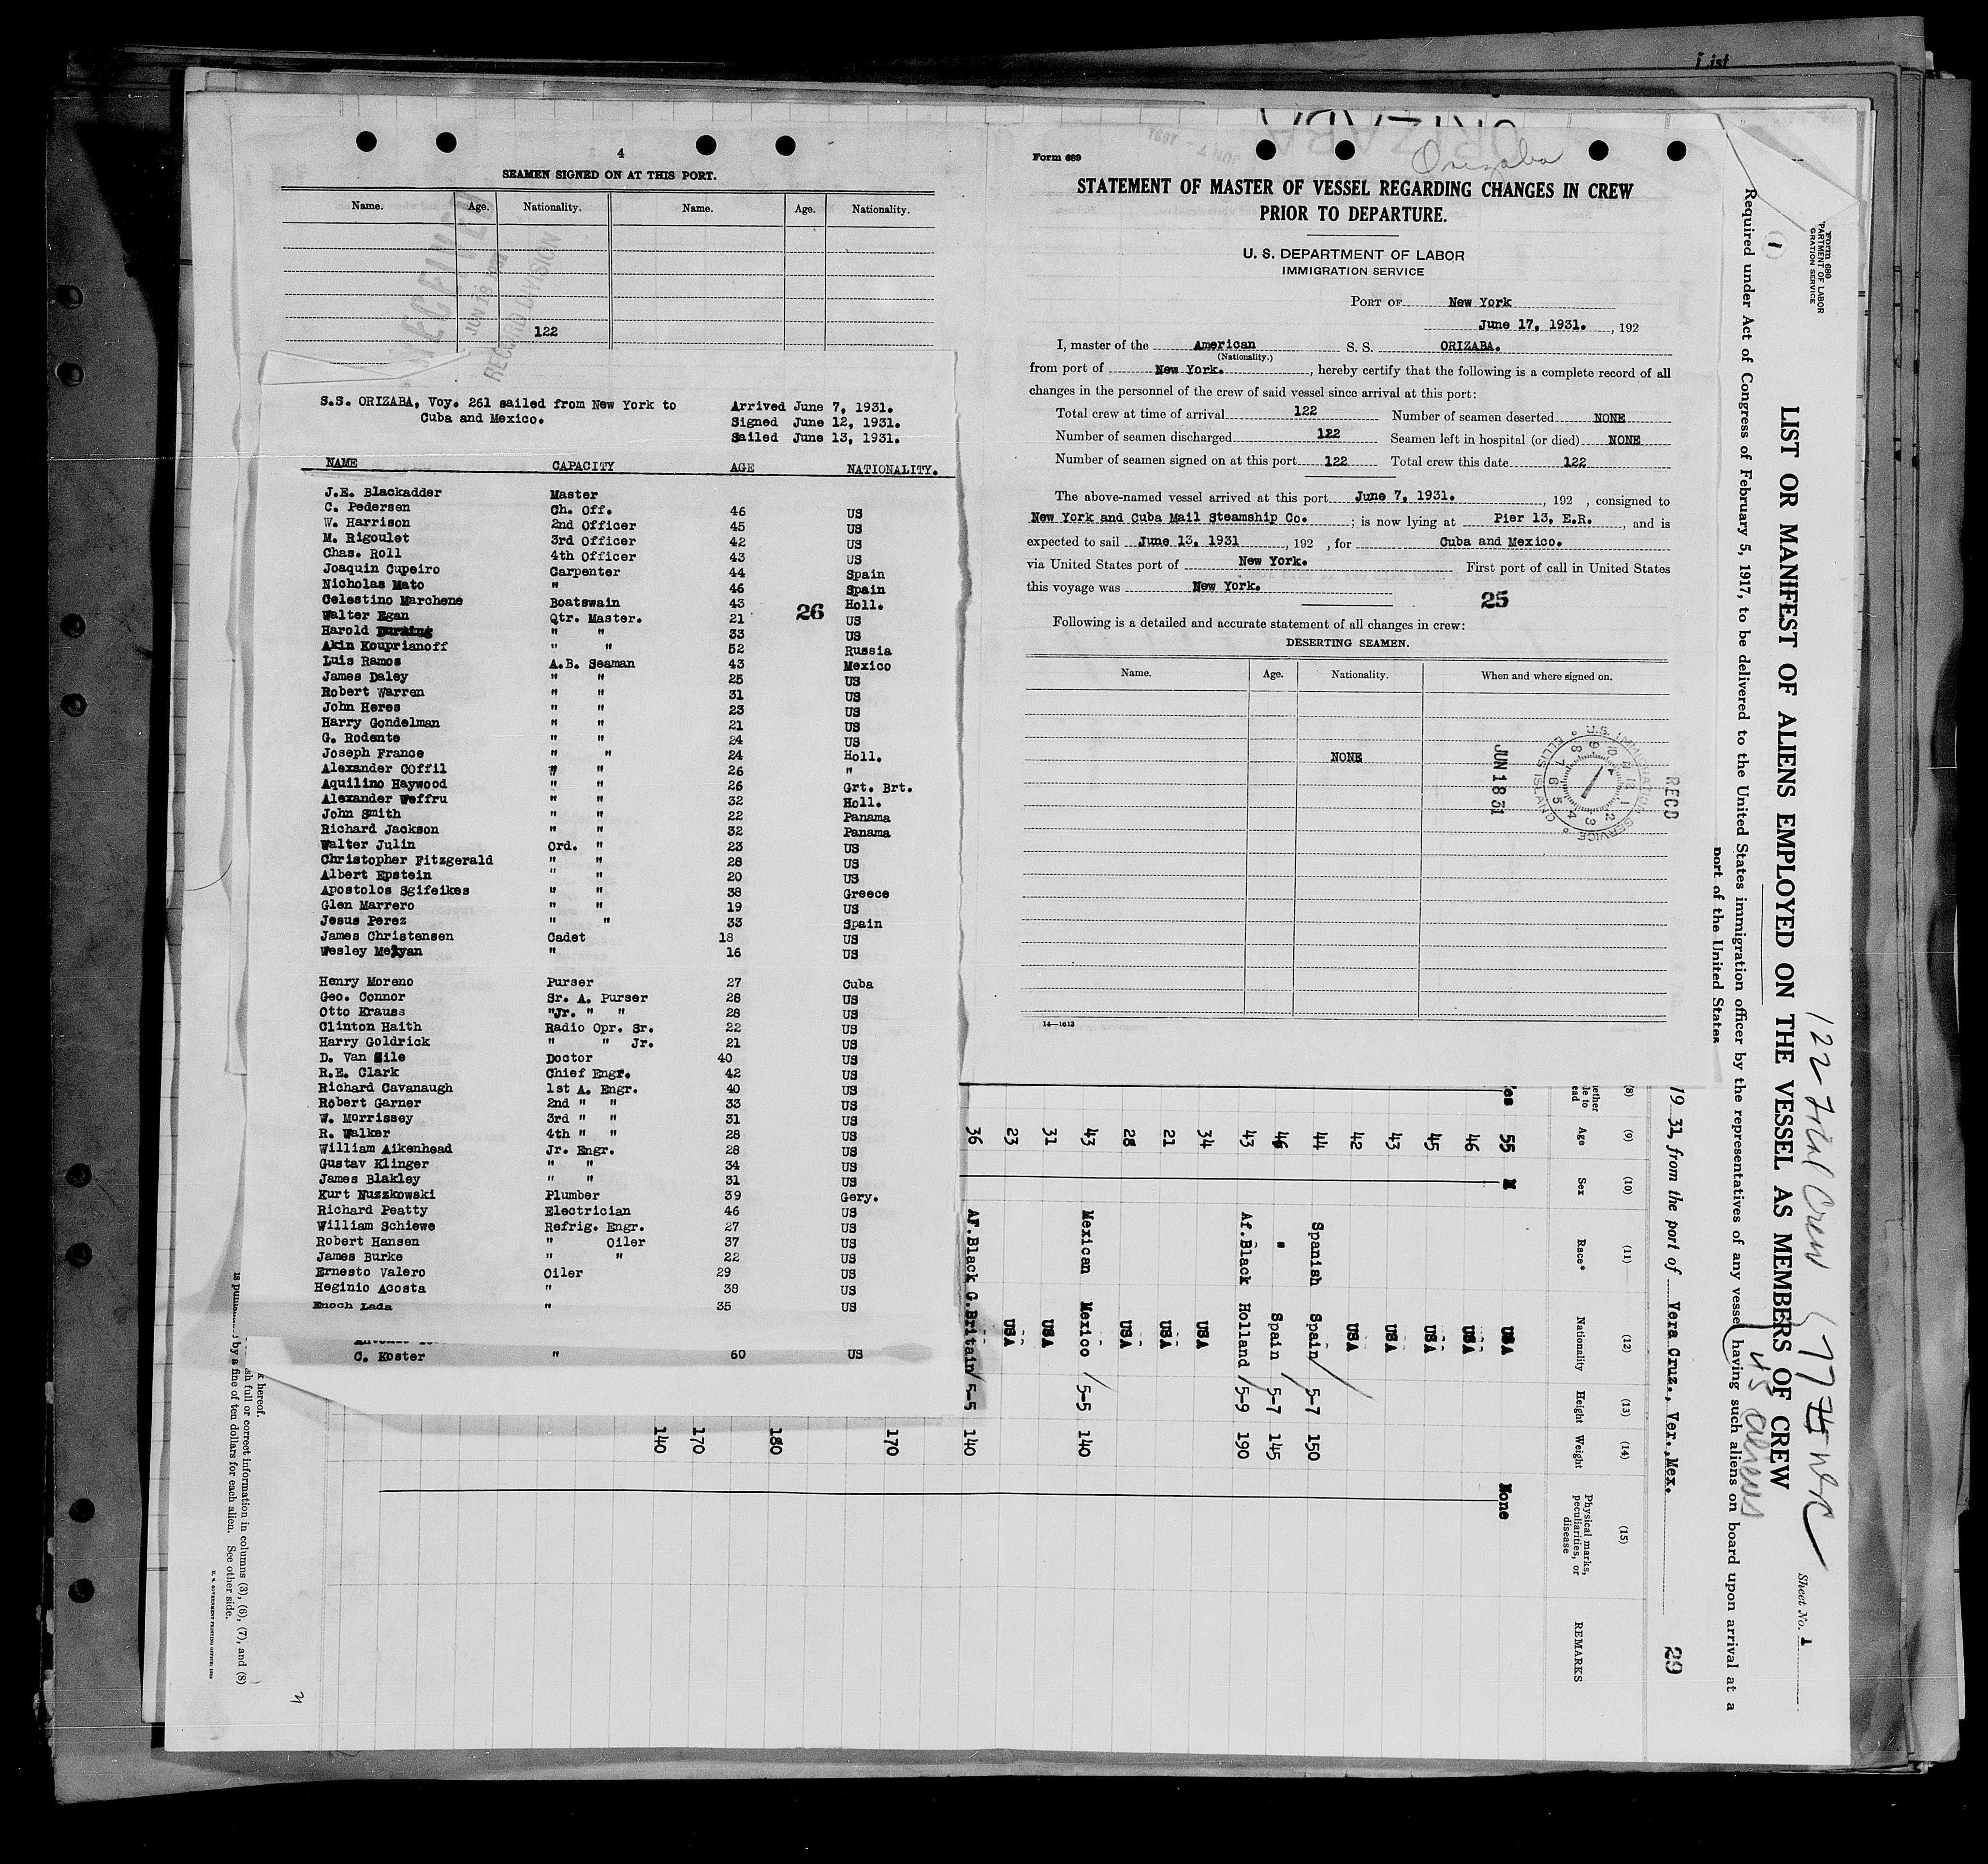 List
4
SEAMEN SIGNED ON AT THIS PORT.
Name. Age. Nationality. Name. Age. Nationality.
RECEIVED
JUN 19 1931
RECORD DIVISION
122
S.S. ORIZABA, Voy. 261 sailed from New York to Arrived June 7, 1931.
Cuba and Mexico. Signed June 12, 1931.
Sailed June 13, 1931.
NAME CAPACITY AGE NATIONALITY.
J.E. Blackadder Master
C. Pedersen Ch. Off. 46 US
W. Harrison 2nd Officer 45 US
M. Rigoulet 3rd Officer 42 US
Chas. Roll 4th Officer 43 US
Joaquin Cupeiro Carpenter 44 Spain
Nicholas Mato " 46 Spain
Celestino Marchene Boatswain 43 Holl.
26
Walter Egan Qtr. Master. 21 US
Harold " " 33 US
Akin Kouprianoff " " 52 Russia
Luis Ramos A.B. Seaman 43 Mexico
James Daley " " 25 US
Robert Warren " " 31 US
John Heres " " 23 US
Harry Gondelman " " 21 US
G. Rodente " " 24 US
Joseph France " " 24 Holl.
Alexander COffil " " 26 "
Aquilino Haywood " " 26 Grt. Brt.
Alexander Weffru " " 32 Holl.
John Smith " " 22 Panama
Richard Jackson " " 32 Panama
Walter Julin Ord. " 23 US
Christopher Fitzgerald " " 28 US
Albert Epstein " " 20 US
Apostolos Sgifeikes " " 38 Greece
Glen Marrero " " 19 US
Jesus Perez " " 33 Spain
James Christensen Cadet 18 US
Wesley " 16 US
Henry Moreno Purser 27 Cuba
Geo. Connor Sr. A. Purser 28 US
Otto Krauss "Jr. " " 28 US
Clinton Haith Radio Opr. Sr. 22 US
Harry Goldrick " " Jr. 21 US
D. Van Sile Doctor 40 US
R.E. Clark Chief Engr. 42 US
Richard Cavanaugh 1st A. Engr. 40 US
Robert Garner 2nd " " 33 US
W. Morrissey 3rd " " 31 US
R. Walker 4th " " 28 US
William Aikenhead Jr. Engr. 28 US
Gustav Klinger " " 34 US
James Blakley " " 31 US
Kurt Nuszkowski Plumber 39 Gery.
Richard Peatty Electrician 46 US
William Schiewe Refrig. Engr. 27 US
Robert Hansen " Oiler 37 US
James Burke " " 22 US
Ernesto Valero Oiler 29 US
Heginio Acosta " 38 US
Enoch Lada " 35 US
C. Koster " 60 US
Form 689
ORIZABA
Orizaba
STATEMENT OF MASTER OF VESSEL REGARDING CHANGES IN CREW
PRIOR TO DEPARTURE.
U. S. DEPARTMENT OF LABOR
IMMIGRATION SERVICE
PORT OF New York
June 17, 1931. , 192
I, master of the American S. S. ORIZABA.
(Nationality.)
from port of New York. , hereby certify that the following is a complete record of all
changes in the personnel of the crew of said vessel since arrival at this port:
Total crew at time of arrival 122 Number of seamen deserted NONE
Number of seamen discharged 122 Seamen left in hospital (or died) NONE
Number of seamen signed on at this port 122 Total crew this date 122
The above-named vessel arrived at this port June 7, 1931. , 192 , consigned to
New York and Cuba Mail Steamship Co. ; is now lying at Pier 13, E.R. , and is
expected to sail June 13, 1931 , 192 , for Cuba and Mexico.
via United States port of New York. First port of call in United States
this voyage was New York.
25
Following is a detailed and accurate statement of all changes in crew:
DESERTING SEAMEN.
Name. Age. Nationality. When and where signed on.
NONE
RECD
U.S. IMMIGRATION SERVICE ELLIS ISLAND
JUN 18 31
14—1613
Form 680
PARTMENT OF LABOR
GRATION SERVICE
1
Sheet No. 1
122 Total Crew 77
45 aliens
LIST OR MANIFEST OF ALIENS EMPLOYED ON THE VESSEL AS MEMBERS OF CREW
Required under Act of Congress of February 5, 1917, to be delivered to the United States immigration officer by the representatives of any vessel having such aliens on board upon arrival at a
port of the United States
19 31, from the port of Vera Cruz., Ver.,Mex.
29
(8) (9) (10) (11) (12) (13) (14) (15)
Age Sex Race* Nationality Height Weight Physical marks, peculiarities, or disease REMARKS
55 M USA None
46 USA
45 USA
43 USA
42 USA
44 Spanish Spain 5-7 150
46 " Spain 5-7 145
43 Af.Black Holland 5-9 190
34 USA
21 USA
28 USA
43 Mexican Mexico 5-5 140
31 USA
23 USA
36 AF.Black G.Britain 5-5 140
170
180
170
140
hereof.
sh full or correct information in columns (3), (6), (7), and (8)
by a fine of ten dollars for each alien. See other side.
U. S. GOVERNMENT PRINTING OFFICE